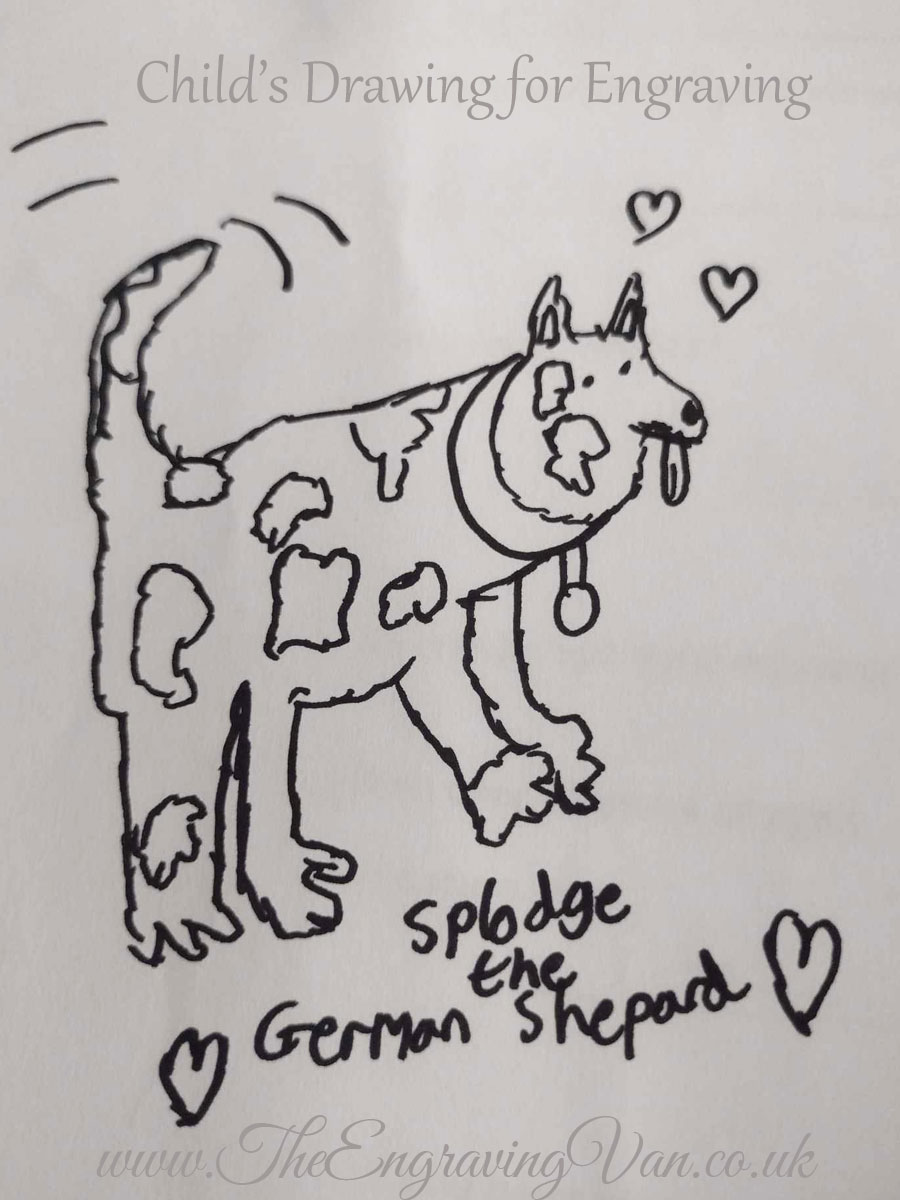 Child's Drawing for Engraving
Splodge
the
German Shepard
www.TheEngravingVan.co.uk